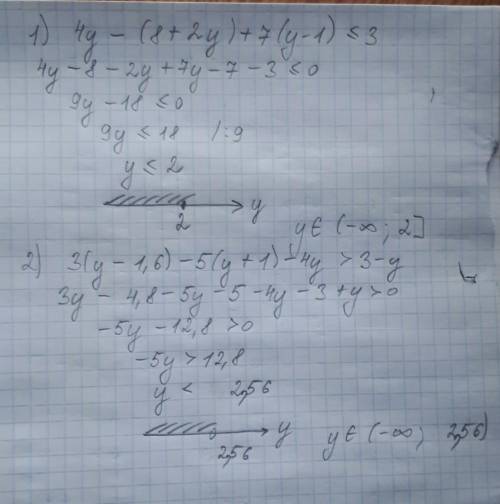 1) 4y - (8 + 2y) + 7(y - 1) ≤ 3
4y - 8 - 2y + 7y - 7 - 3 ≤ 0
9y - 18 ≤ 0
9y ≤ 18 /:9
y ≤ 2
2 y
y ∈ (-∞; 2]
2) 3(y - 1,6) - 5(y + 1) - 4y > 3 - y
3y - 4,8 - 5y - 5 - 4y - 3 + y > 0
-5y - 12,8 > 0
-5y > 12,8
y < 2,56
2,56 y
y ∈ (-∞; 2,56)